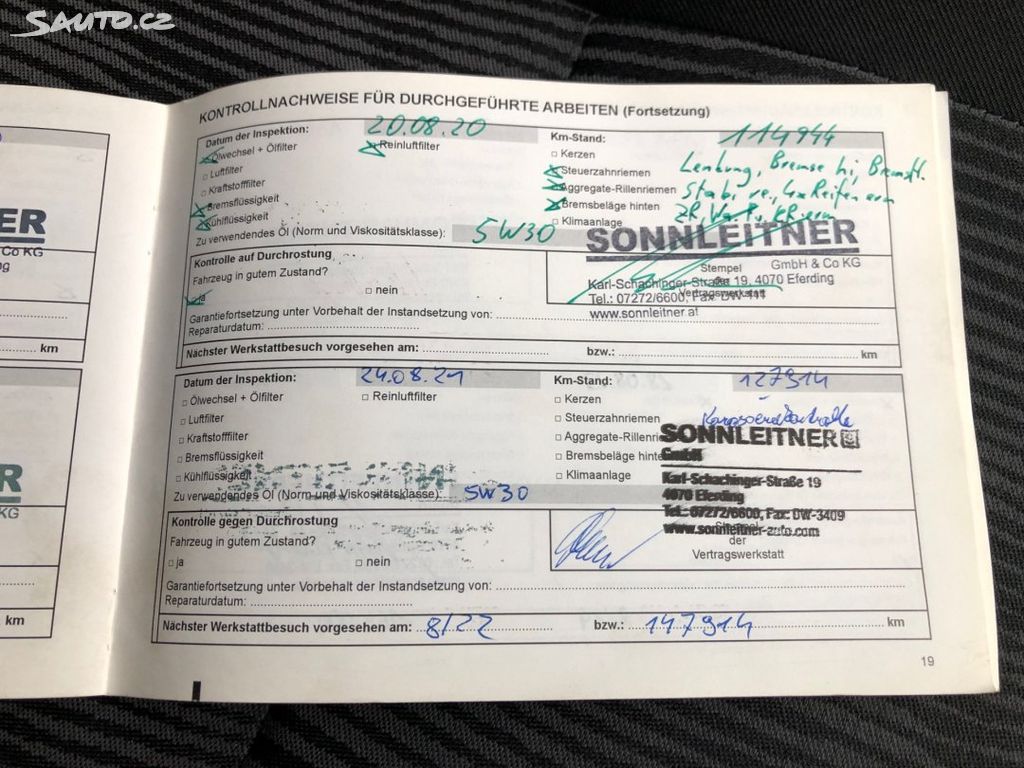 SAUTO.CZ
KONTROLLNACHWEISE FÜR DURCHGEFÜHRTE ARBEITEN (Fortsetzung)
Datum der Inspektion: 20.08.20 Km-Stand: 114944
Ölwechsel + Ölfilter Reinluftfilter Kerzen
Luftfilter Steuerzahnriemen Lenkung, Bremse hi,
Kraftstofffilter Aggregate-Rillenriemen Stabi re, 4x Reifen
Bremsflüssigkeit Bremsbeläge hinten ZR,
Kühlflüssigkeit Klimaanlage
Zu verwendendes Öl (Norm und Viskositätsklasse): 5W30
SONNLEITNER
GmbH & Co KG
Kontrolle auf Durchrostung
Fahrzeug in gutem Zustand?
ja nein
Stempel
der
Vertragswerkstatt
Karl-Schachinger-Straße 19, 4070 Eferding
Tel.: 07272/6600, Fax DW-111
www.sonnleitner.at
Garantiefortsetzung unter Vorbehalt der Instandsetzung von:
Reparaturdatum:
Nächster Werkstattbesuch vorgesehen am: bzw.: km
Datum der Inspektion: 24.08.21 Km-Stand: 127914
Ölwechsel + Ölfilter Reinluftfilter Kerzen
Luftfilter Steuerzahnriemen
Kraftstofffilter Aggregate-Rillenrie
Bremsflüssigkeit Bremsbeläge hinten
Kühlflüssigkeit Klimaanlage
Zu verwendendes Öl (Norm und Viskositätsklasse): 5W30
SONNLEITNER
GmbH
Karl-Schachinger-Straße 19
4070 Eferding
Tel.: 07272/6600, Fax: DW-3409
www.sonnleitner-auto.com
Kontrolle gegen Durchrostung
Fahrzeug in gutem Zustand?
ja nein
der
Vertragswerkstatt
Garantiefortsetzung unter Vorbehalt der Instandsetzung von:
Reparaturdatum:
Nächster Werkstattbesuch vorgesehen am: 8/22 bzw.: 147914 km
19
ER
& Co KG
ng
km
R
KG
km